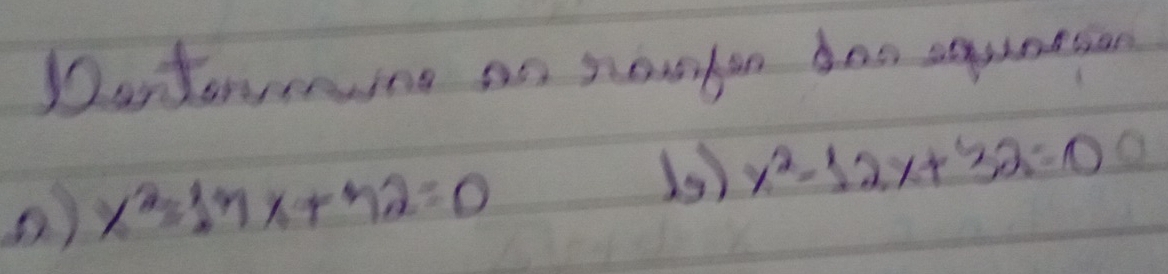 Determine as raízes das equações
a) x² - 17x + 72 = 0 b) x² - 12x + 32 = 0